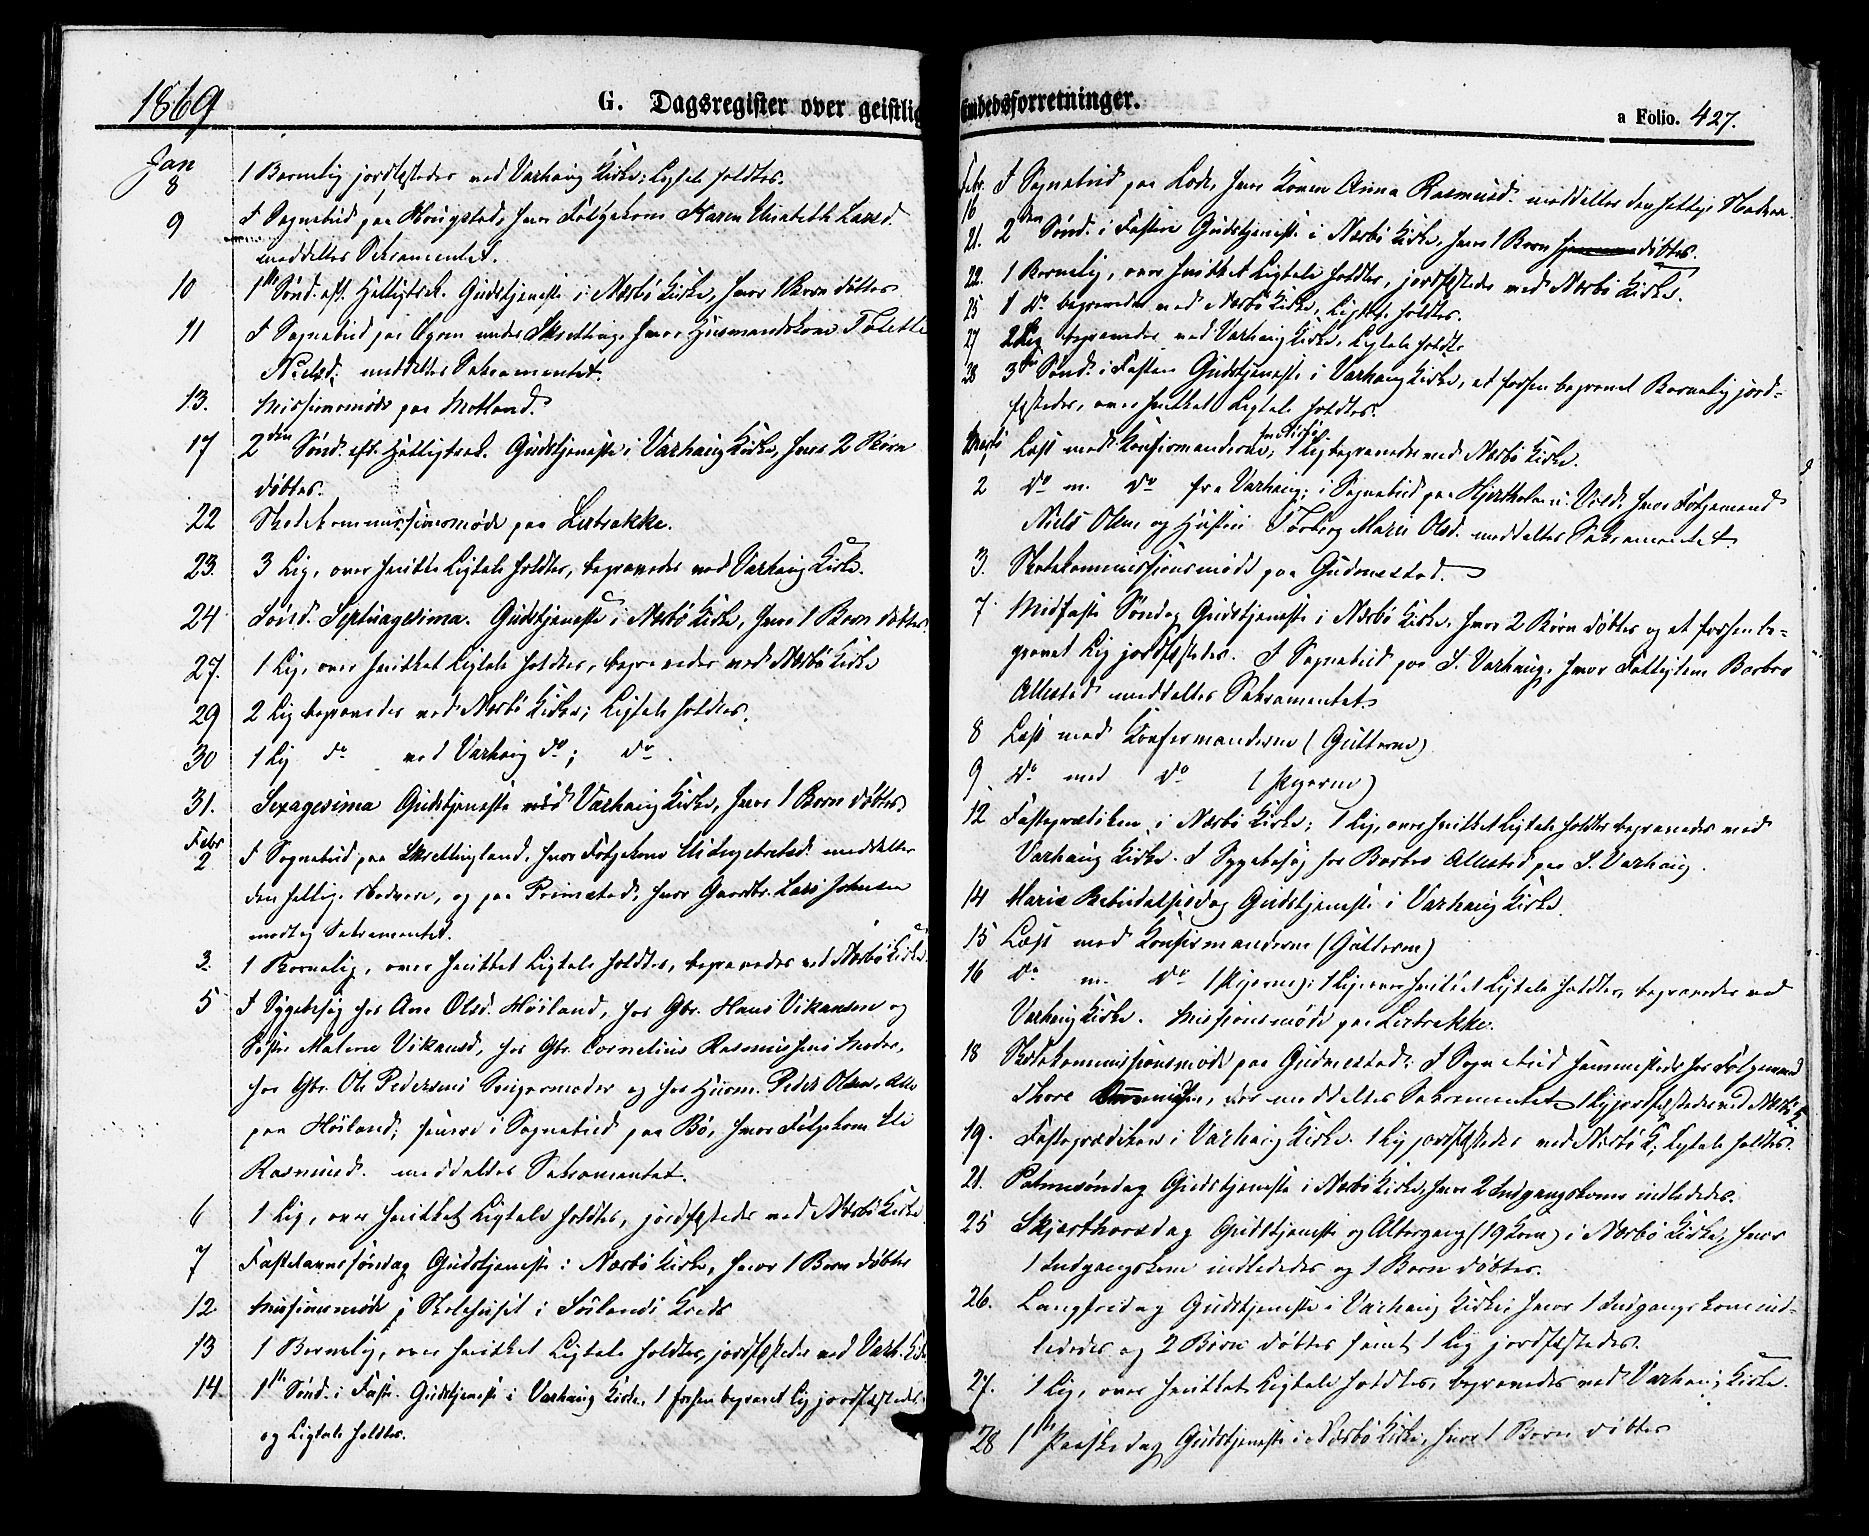 1869
G. Dagsregister over geistlig
Jan
8 1 Barnelig jordfæstedes ved Varhaug Kirke; Ligtale holdtes.
9 I Sognebud paa Haugstad, hvor Følgekone Karen Elisabeth Larsd.
meddeltes Sakramentet.
10 1ste Sønd. eft. Helligtrek. Gudstjeneste i Nærbø Kirke, hvor 1 Barn døbtes
11 I Sognebud paa under Skretting, hvor Husmandskone Tolette
Nielsd. meddeltes Sakramentet.
13. Missionsmøde paa Motland.
17 2den Sønd. eft. Helligtrek. Gudstjeneste i Varhaug Kirke, hvor 2 Børn
døbtes.
22 Skolekommissionsmøde paa Lerbrække.
23. 3 Lig, over hvilke Ligtale holdtes, begravedes ved Varhaug Kirke.
24 Sønd. Septuagesima. Gudstjeneste i Nærbø Kirke, hvor 1 Barn døbtes.
27. 1 Lig, over hvilket Ligtale holdtes, begravedes ved Nærbø Kirke
29 2 Lig begravedes ved Nærbø Kirke; Ligtale holdtes.
30 1 Lig do ved Varhaug do; do.
31. Sexagesima Gudstjeneste ved Varhaug Kirke, hvor 1 Barn døbtes
Febr
2 I Sognebud paa Skrettingland, hvor Følgekone meddeltes
den hellige Nadvere, og paa Primstad, hvor Gaardbr. Lars Johnsen
modtog Sakramentet.
3. 1 Barnelig, over hvilket Ligtale holdtes, begravedes ved Nærbø Kirke.
5 I Sygebesøg hos Ane Olsd. Høiland, hos Gbr. Hans Vikansen og
Søster Malene Vikansd., hos Gbr. Cornelius Rasmussens Moder,
hos Gbr. Ole Pedersens Svigermoder og hos Husm. Peder Olsen, Alle
paa Høiland; senere i Sognebud paa Bø, hvor Følgekone Eli
Rasmusd. meddeltes Sakramentet.
6 1 Lig, over hvilket Ligtale holdtes, jordfæstedes ved Nærbø Kirke
7 Fastelavnssøndag Gudstjeneste i Nærbø Kirke, hvor 1 Barn døbtes
12 Missionsmøde i Skolehuset i Søilands Kreds
13 1 Barnelig, over hvilket Ligtale holdtes, jordfæstedes ved Varh. Kirke
14 1ste Sønd. i Faste. Gudstjeneste i Varhaug Kirke. 1 forhen begravet Lig jordfæstedes
og Ligtale holdtes.
Embedsforretninger.
a Folio. 427.
Febr. I Sognebud paa Lode, hvor Konen Anna Rasmusd. meddeltes den hellige Nadvere.
16
21. 2den Sønd. i Fasten Gudstjeneste i Nærbø Kirke, hvor 1 Barn døbtes.
22. 1 Barnelig, over hvilket Ligtale holdtes, jordfæstedes ved Nærbø Kirke.
25 1 do begravedes ved Nærbø Kirke, Ligtale holdtes.
27 2 Lig begravedes ved Varhaug Kirke, Ligtale holdtes
28 3die Sønd. i Fasten Gudstjeneste i Varhaug Kirke, et forhen begravet Barnelig jord-
fæstedes, over hvilket Ligtale holdtes.
Marts Læst med Konfirmanderne fra Nærbø; 1 Lig begravedes ved Nærbø Kirke.
2 do m. do fra Varhaug; i Sognebud paa Hjertholm i Vold, hvor Følgemand
Niels Olsen og Hustru Torborg Marie Olsd. meddeltes Sakramentet.
3. Skolekommissionsmøde paa Gudmestad.
7. Midfaste Søndag Gudstjeneste i Nærbø Kirke, hvor 2 Børn døbtes og et forhen be-
gravet Lig jordfæstedes. I Sognebud paa S. Varhaug, hvor Fattiglem Barbro
Allestad meddeltes Sakramentet.
8 Læst med Konfirmanderne (Gutterne)
9. do med do (Pigerne)
12 Fasteprædiken i Nærbø Kirke; 1 Lig, over hvilket Ligtale holdtes begravedes ved
Varhaug Kirke. I Sygebesøg hos Barbro Allestad paa S. Varhaug.
14 Mariæ Bebudelsesdag Gudstjeneste i Varhaug Kirke.
15 Læst med Konfirmanderne (Gutterne)
16 do m. do (Pigerne); 1 Lig, over hvilket Ligtale holdtes, begravedes ved
Varhaug Kirke. Missionsmøde paa Lerbrække.
18 Skolekommissionsmøde paa Gudmestad; I Sognebud sammesteds hos Følgemand
Thore, der meddeltes Sakramentet. 1 Lig jordfæstedes ved Nærbø K.
19. Fasteprædiken i Varhaug Kirke. 1 Lig jordfæstedes ved Nærbø K; Ligtale holdtes.
21. Palmesøndag Gudstjeneste i Nærbø Kirke, hvor 2 Indgangskoner indlededes.
25 Skjærthorsdag Gudstjeneste og Altergang (19 Kom.) i Nærbø Kirke, hvor
1 Indgangskone indlededes og 1 Barn døbtes.
26. Langfredag Gudstjeneste i Varhaug Kirke, hvor 1 Indgangskone ind-
lededes og 2 Børn døbtes samt 1 Lig jordfæstedes.
27. 1 Lig, over hvilket Ligtale holdtes, begravedes ved Varhaug Kirke.
28 1ste Paaskedag Gudstjeneste i Nærbø Kirke, hvor 1 Barn døbtes